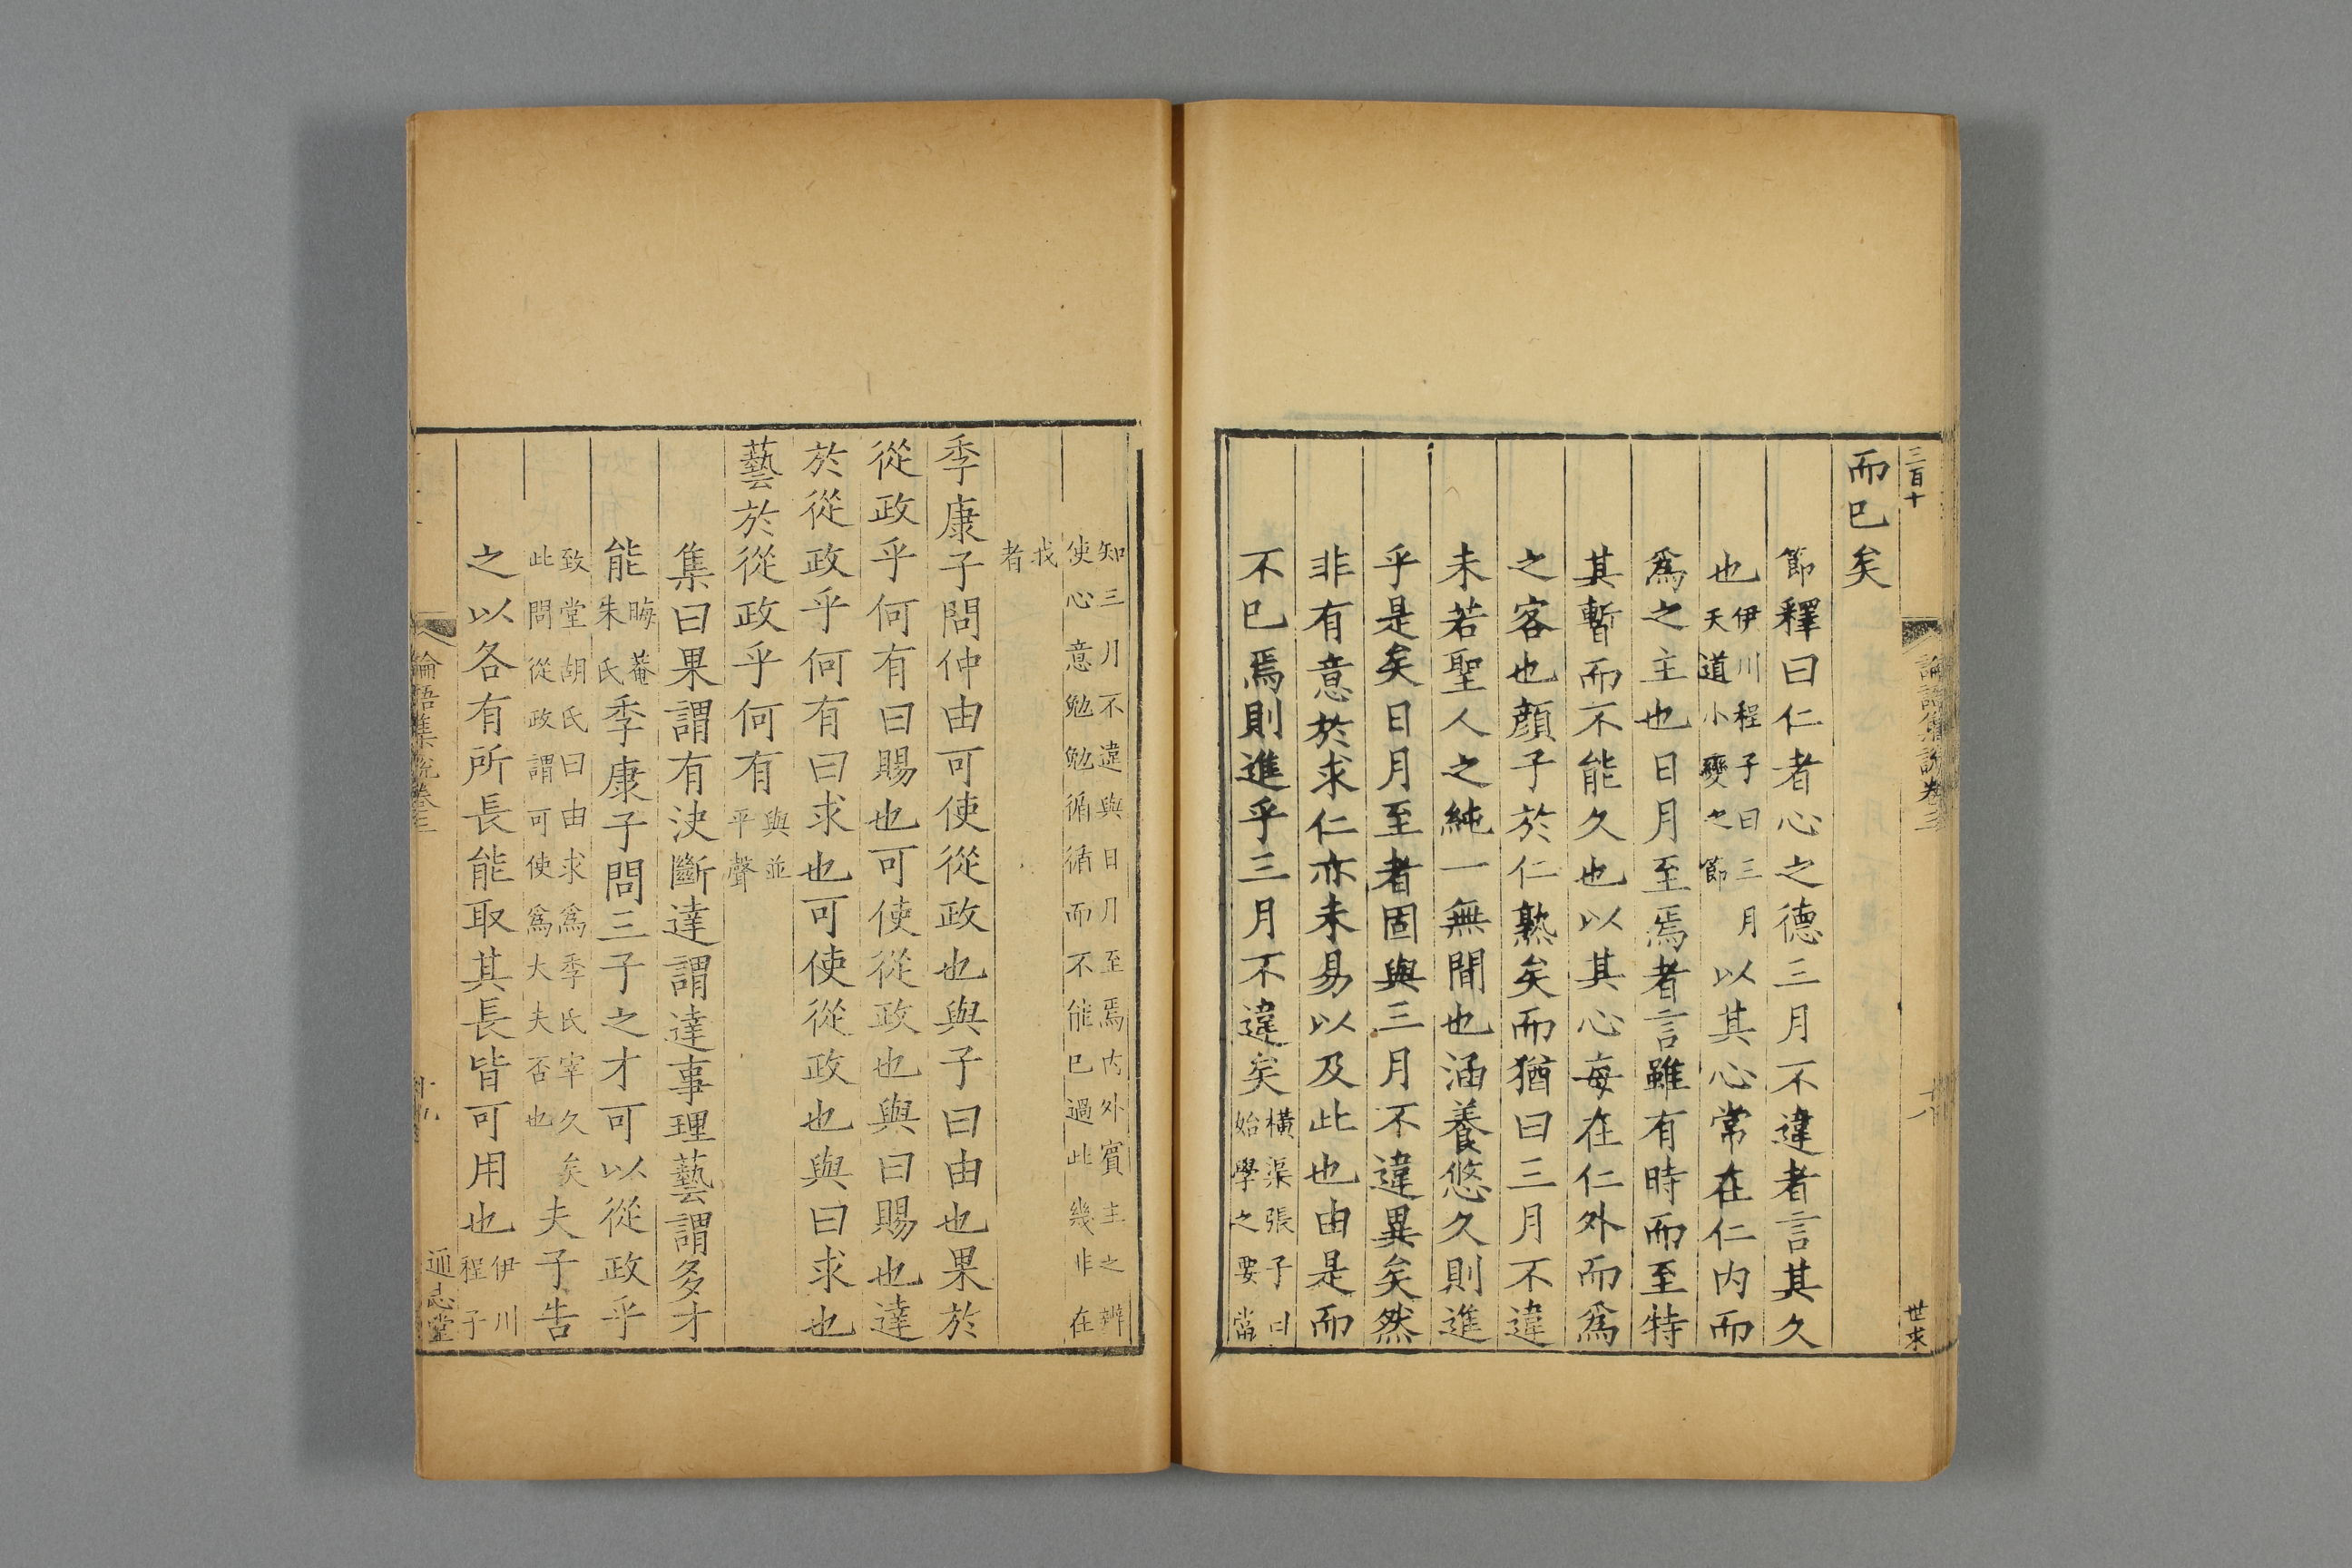 三百十
論語集說卷三
十八
世求
而已矣
節釋曰仁者心之德三月不違者言其久
也伊川程子曰三月天道小變之節以其心常在仁内而
爲之主也日月至焉者言雖有時而至特
其暫而不能久也以其心每在仁外而爲
之客也顔子於仁熟矣而猶曰三月不違
未若聖人之純一無間也涵養悠久則進
乎是矣日月至者固與三月不違異矣然
非有意於求仁亦未易以及此也由是而
不已焉則進乎三月不違矣橫渠張子曰始學之要當
知三月不違與日月至焉内外賓主之辨
使心意勉勉循循而不能已過此幾非在
我
者
季康子問仲由可使從政也與子曰由也果於
從政乎何有曰賜也可使從政也與曰賜也達
於從政乎何有曰求也可使從政也與曰求也
藝於從政乎何有與並平聲
集曰果謂有決斷達謂達事理藝謂多才
能晦菴朱氏季康子問三子之才可以從政乎
致堂胡氏曰由求爲季氏宰久矣此問從政謂可使爲大夫否也夫子告
之以各有所長能取其長皆可用也伊川程子
論語集說卷三
十九
通志堂